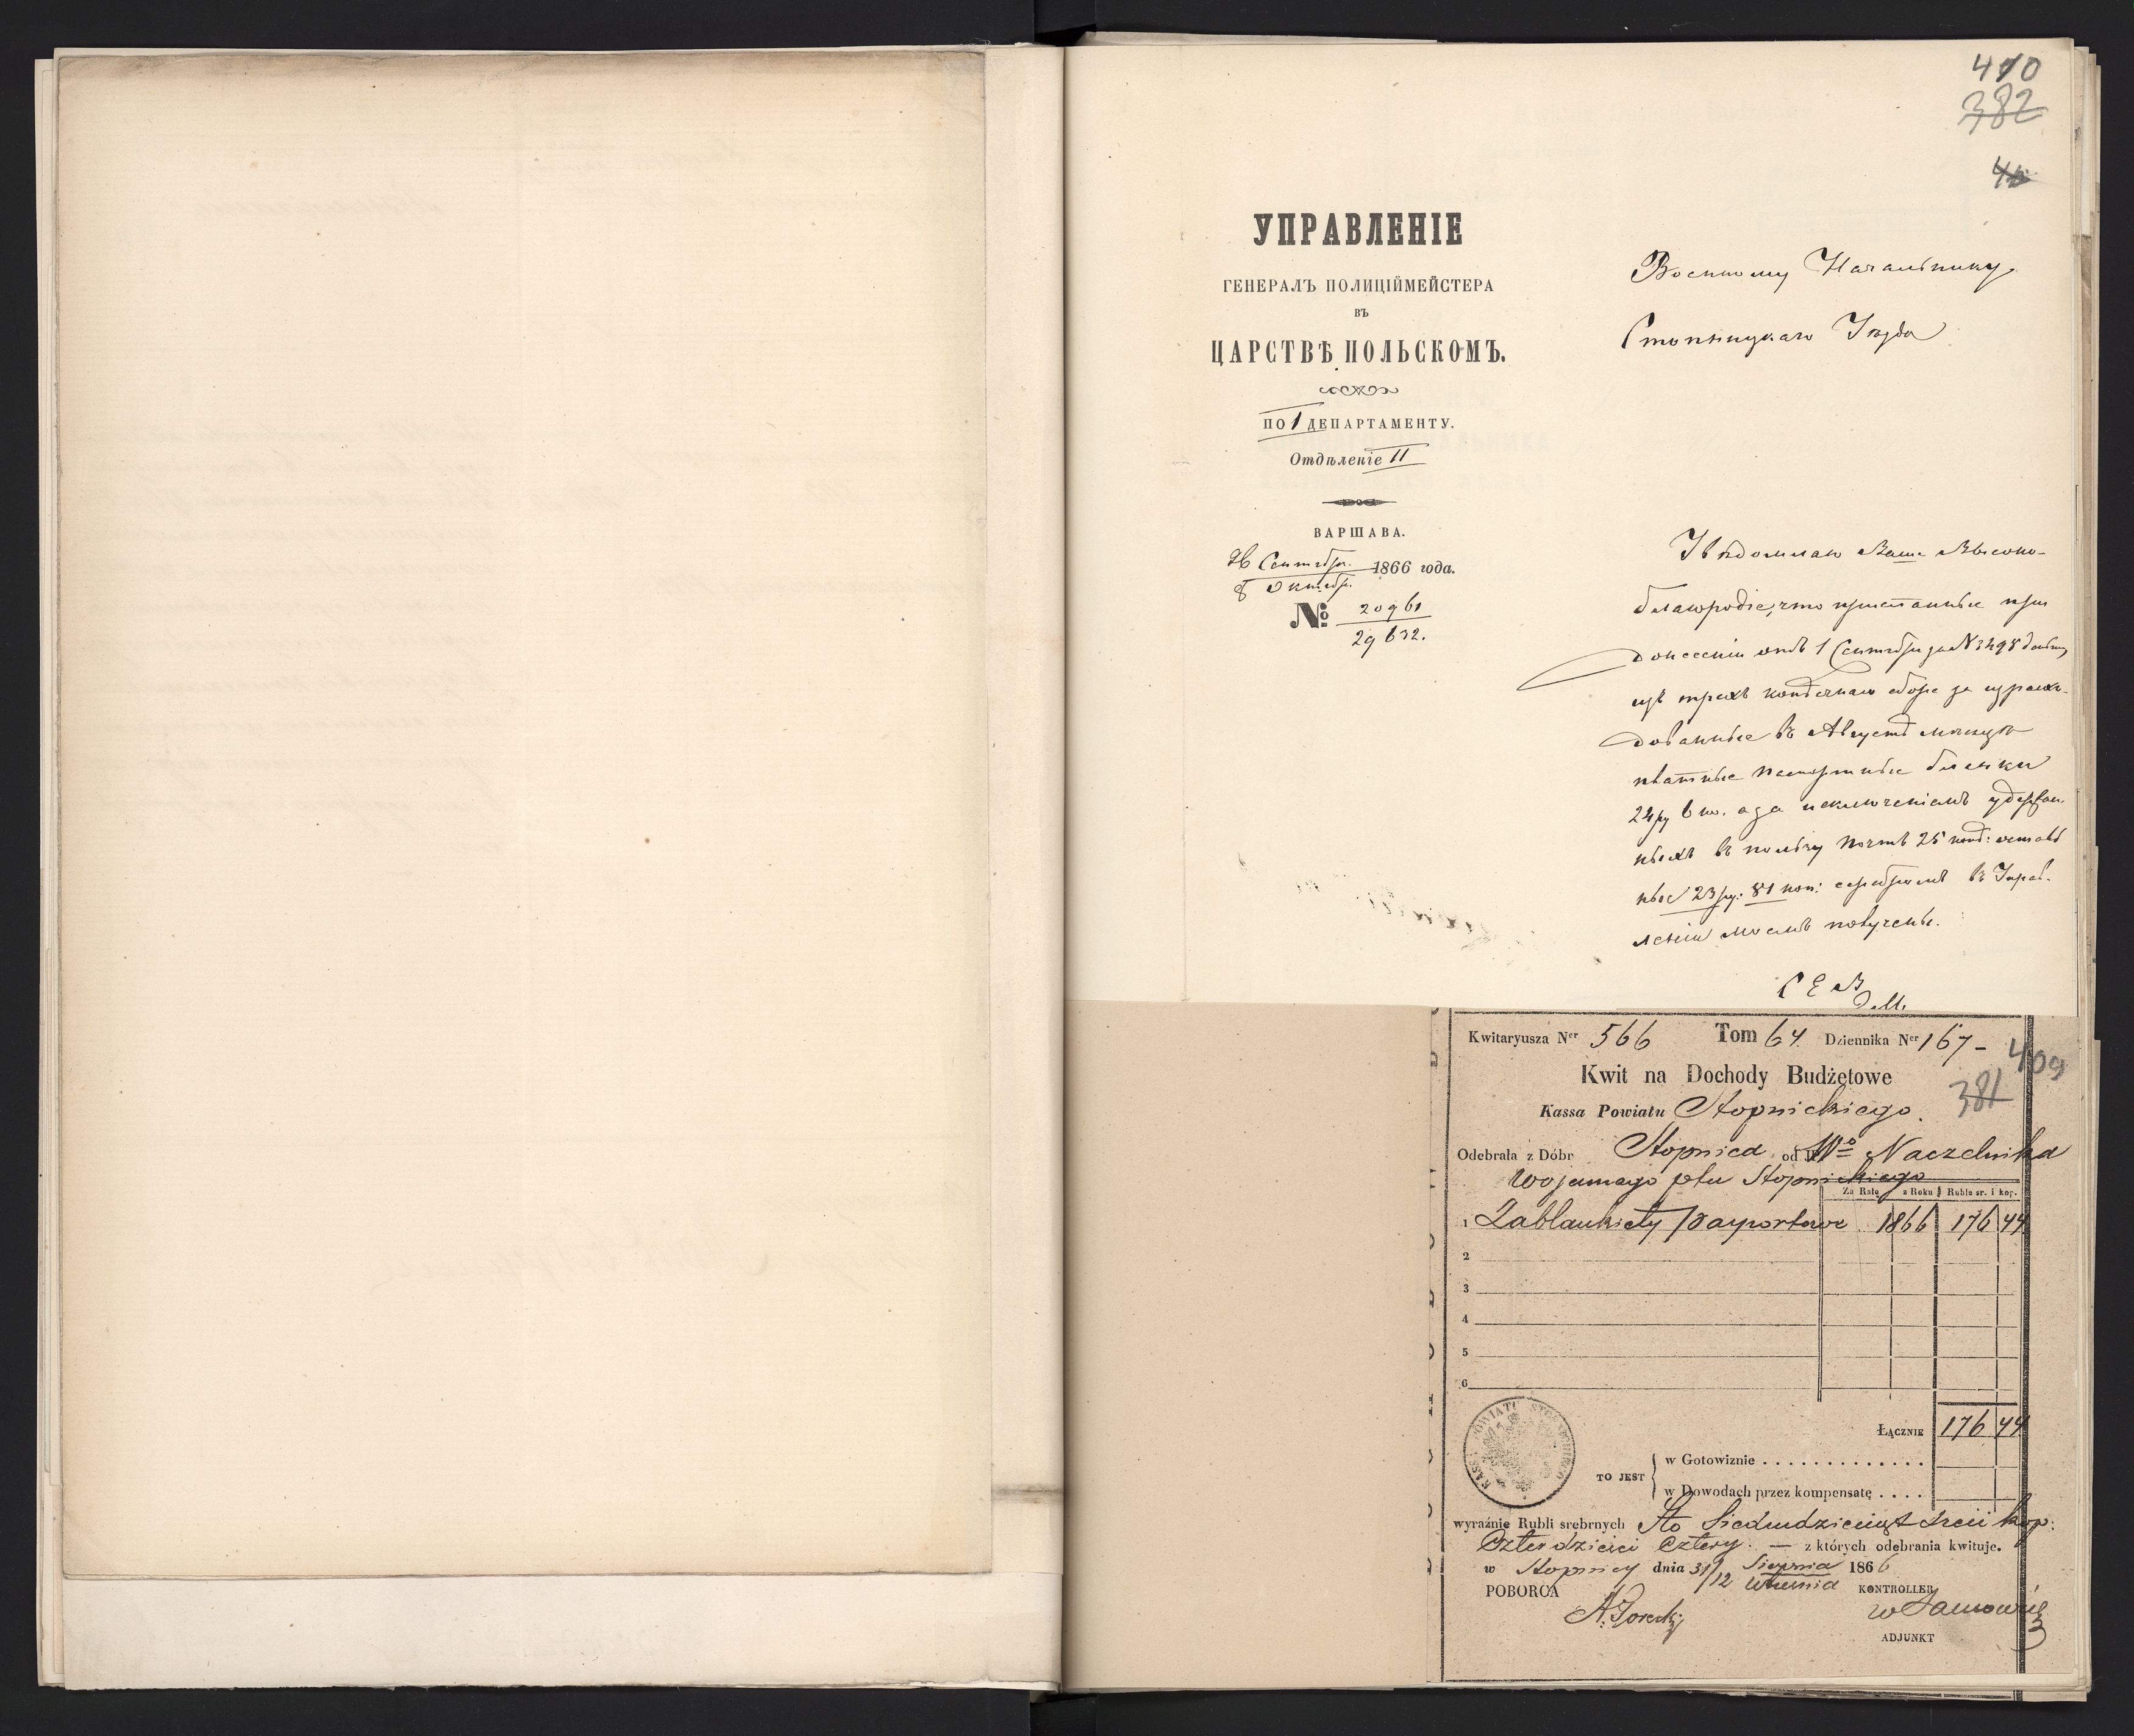 410
382
УПРАВЛЕНІЕ
ГЕНЕРАЛЪ ПОЛИЦІЙМЕЙСТЕРА
ВЪ
ЦАРСТВѢ ПОЛЬСКОМЪ.
ПО 1 ДЕПАРТАМЕНТУ.
Отдѣленіе II
ВАРШАВА.
26 Сентября
8 Октября 1866 года.
№ 20961
29632.
Военному Начальнику
Стопницкаго Уѣзда
Увѣдомляю Ваше Высоко-
благородіе, что присланные при
донесеніи отъ 1 Сентября за № 3498 деньги
изъ трехъ копѣечнаго сбора за израсхо-
дованные въ Августѣ мѣсяцѣ
платные паспортные бланки
24 р 6 к. а за исключеніемъ удержан-
ныхъ въ пользу почтъ 25 коп: осталь
ные 23 ру: 81 коп: серебромъ въ Управ-
леніи моемъ получены.
С Е В
Kwitaryusza Nᵉʳ 566 Tom 64 Dziennika Nᵉʳ 167 -
409
Kwit na Dochody Budżetowe
381
Kassa Powiatu Stopnickiego.
Odebrała z Dóbr Stopnica od Wº Naczelnika
Wojennego ptu Stopnickiego
Za Ratę z Roku Ruble sr. i kop.
1 Za blankiety Paszportowe 1866 176 44
2
3
4
5
6
KASSA POWIATU STOPNICKIEGO
ŁĄCZNIE 176 44
TO JEST
w Gotowiznie . . . . . . . . . . . . . .
w Dowodach przez kompensatę . . . .
wyraźnie Rubli srebrnych Sto Siedmdziesiąt sześć kop:
Czterdzieści Cztery. — z których odebrania kwituje.
w Stopnicy dnia 31/12 Sierpnia Września 1866
POBORCA KONTROLLER
A. Gorecki
ADJUNKT